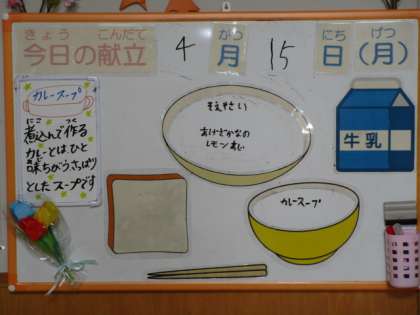 きょう こんだて
今日の献立
4 がつ 月 15 にち 日 げつ (月)
カレースープ
にこ つく
煮込んで作る
カレーとはひと
あじ
味ちがうさっぱり
としたスープです
そえやさい
あげざかなの
レモンあじ
牛乳
カレースープ